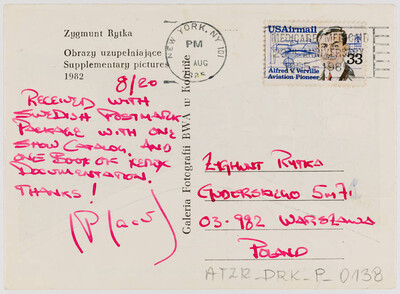 Zygmunt Rytka
Obrazy uzupełniające
Supplementary pictures
1982
8/20
RECEIVED WITH
SWEDISH POSTMARK
PACKAGE WITH ONE
SHOW CATALOG. AND
ONE BOOK OF XEROX
DOCUMENTATION.
THANKS!
Galeria Fotografii BWA w Koninie
NEW YORK, NY 101
PM
AUG
USAirmail
33
Alfred V. Verville
Aviation Pioneer
MEDICARE MEDICAID
ZYGMUNT RYTKA
03-982 WARSZAWA
POLAND
ATZR_DRK_P_0138